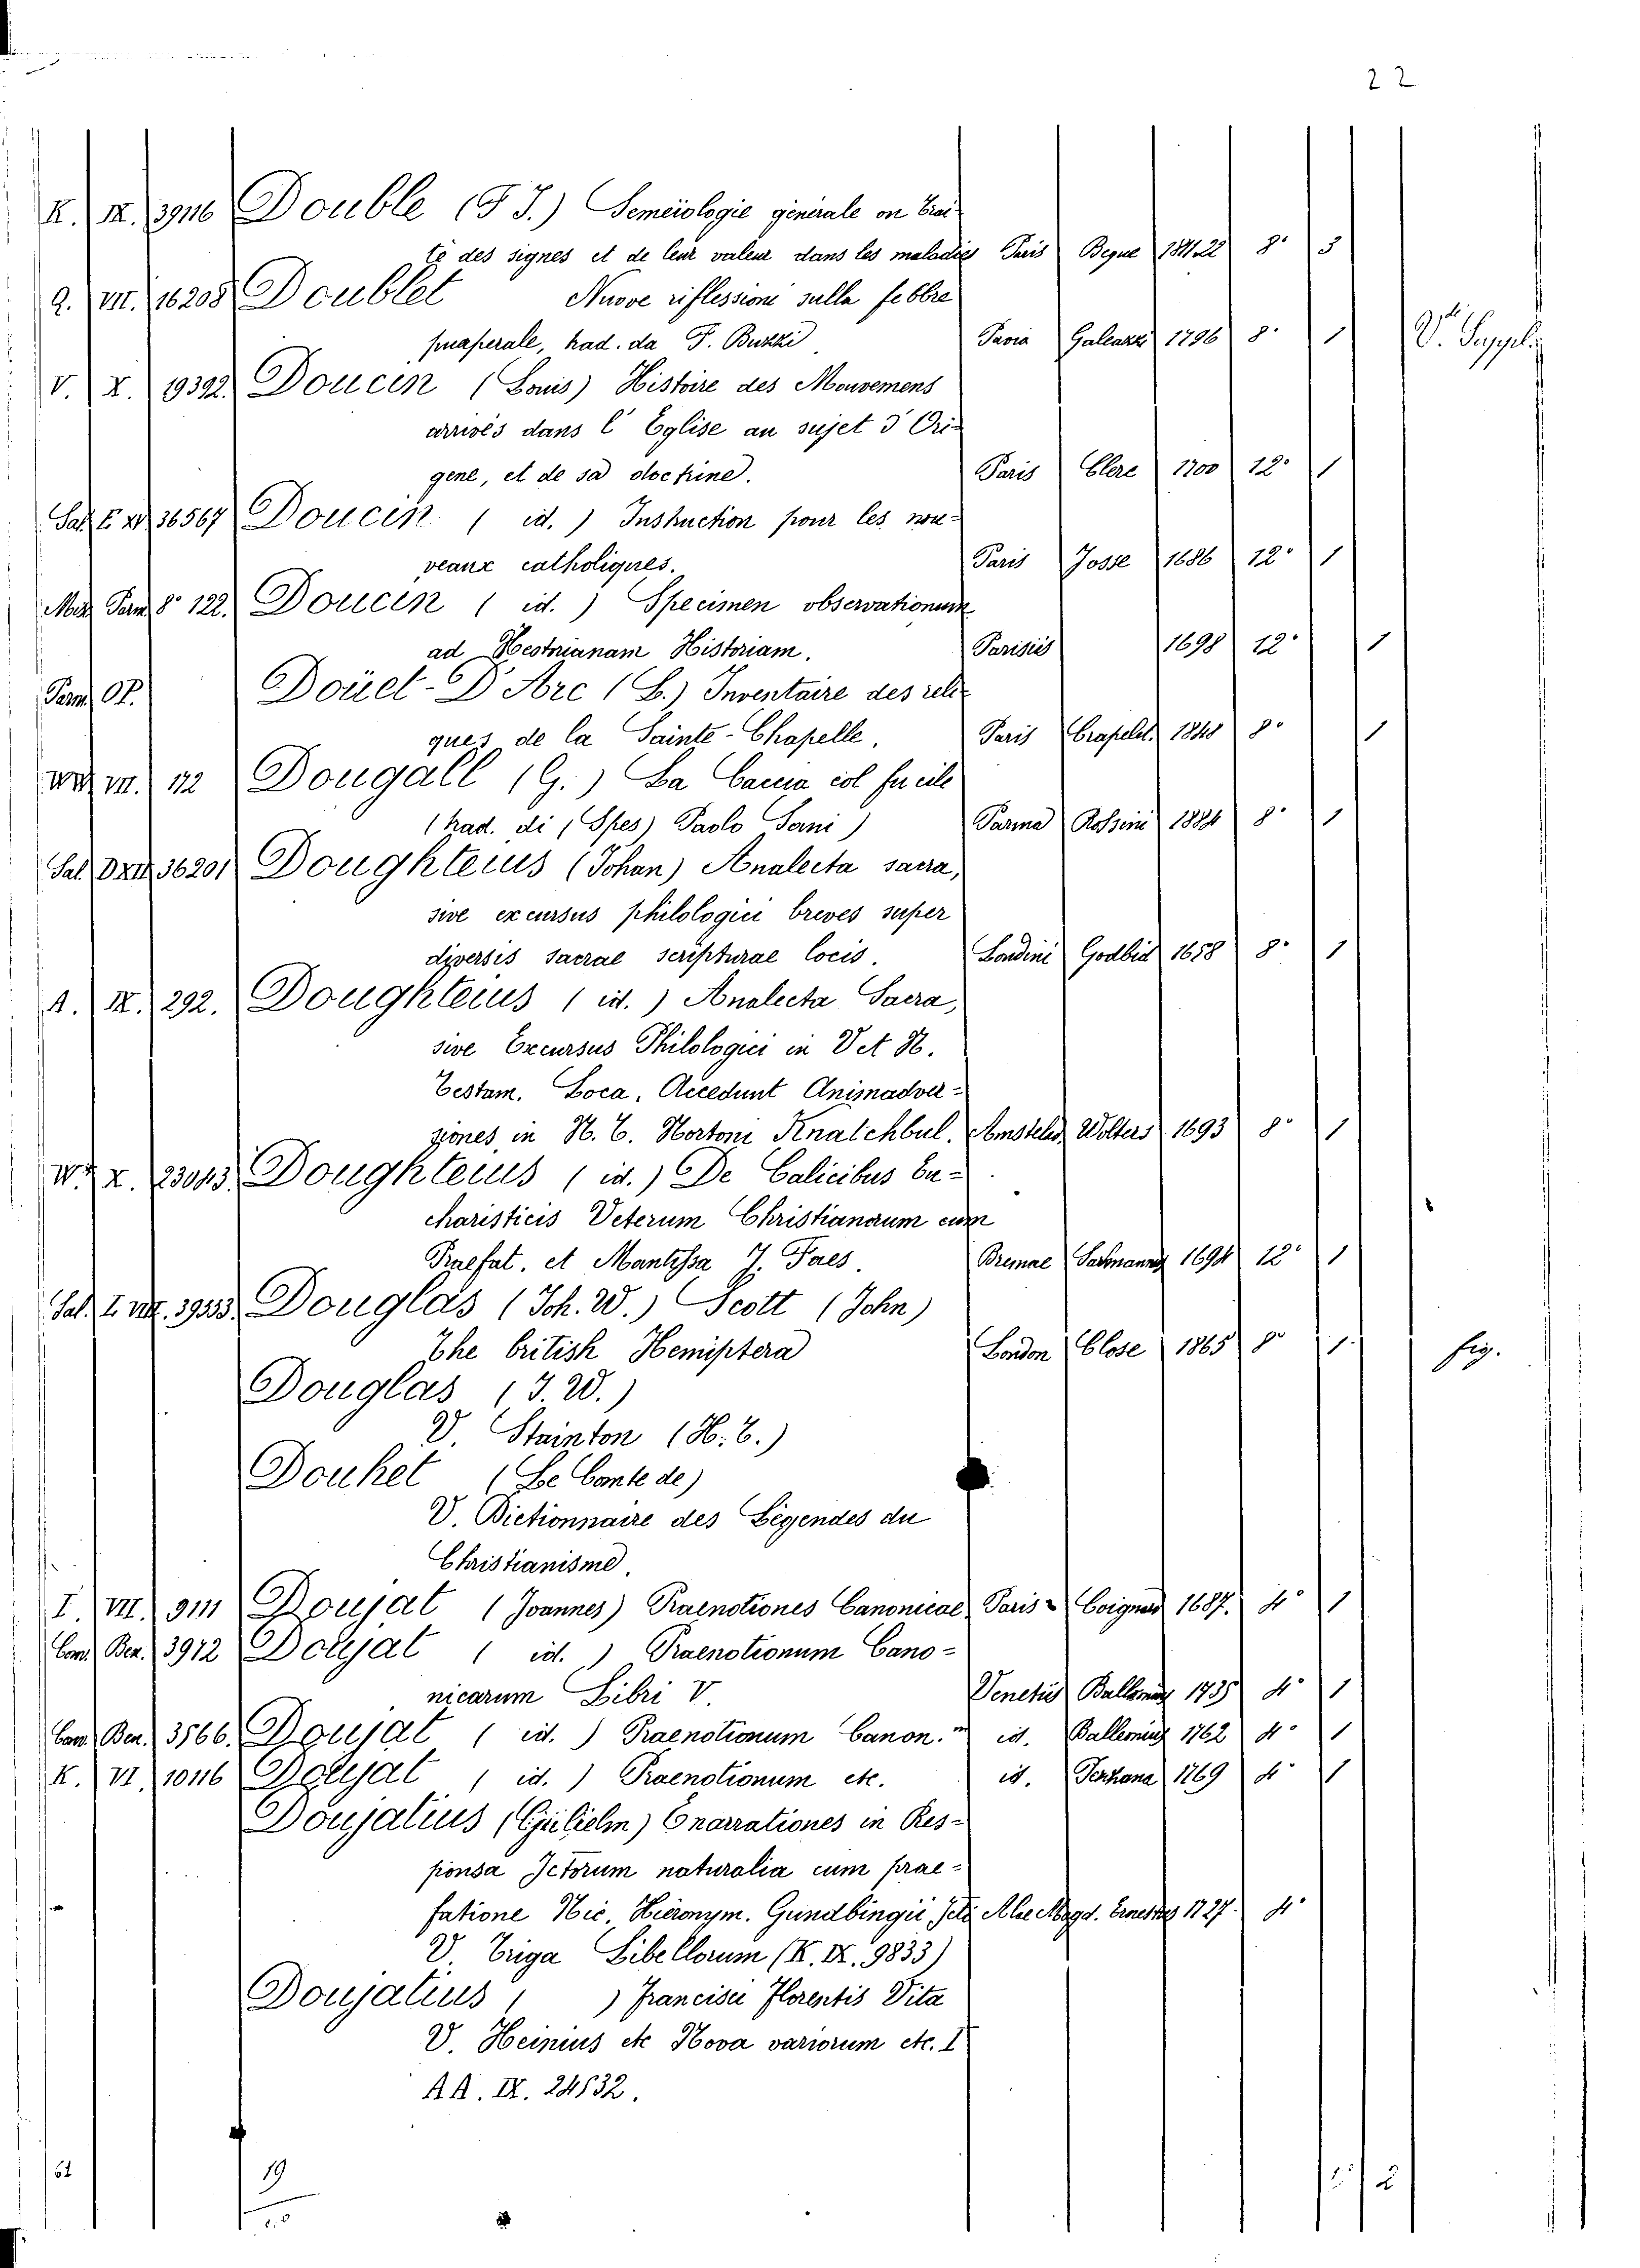 22
K. IX. 39116 Double (F J.) Semeiologie générale ou trai-
té des signes et de leur valeur dans les maladies Paris Beque 1811.22 8° 3
Q. VII. 16208 Doublet Nuove riflessioni sulla febbre
puaperale, trad. da F. Buzzi Pavia Galeazzi 1796 8° 1 V. Suppl.
V. X. 19392. Doucin (Louis) Histoire des Mouvemens
arrivés dans l'Eglise au sujet d'Ori-
gene, et de sa doctrine. Paris Clerc 1700 12° 1
Sal. E. XV. 36567 Doucin ( id. ) Instruction pour les nou-
veaux catholiques. Paris Josse 1686 12° 1
Parm. 8° 122. Doucin ( id. ) Specimen observationum
ad Nestorianam Historiam. Parisiis 1698 12° 1
Parm. Doüet-D'Arc (L.) Inventaire des reli-
ques de la Sainte-Chapelle. Paris Crapelet 1848 8° 1
VII. 112 Dougall (G.) La Caccia col fucile
(trad. di (Spes) Paolo Sani) Parma Rossini 1884 8° 1
Sal. 36201 Doughteius (Johan) Analecta sacra,
sive excursus philologici breves super
diversis sacrae scripturae locis. Londini Godbid 1658 8° 1
A. IX. 292. Doughteius ( id. ) Analecta Sacra,
sive Excursus Philologici in Vet N.
Testam. Loca. Accedunt Animadver-
siones in N. T. Nortoni Knatchbul. Amstelod. Wolters 1693 8° 1
X. 23043. Doughteius ( id. ) De Calicibus Eu-
charisticis Veterum Christianorum cum
Praefat. et Mantissa J. Faes. Bremae 1694 12° 1
Sal. 39333. Douglas (Joh. W.) Scott (John)
The british Hemiptera London Close 1865 8° 1 fig.
Douglas (J. W.)
V. Stainton (H. T.)
Douhet (Le Conte de)
V. Dictionnaire des Légendes du
Christianisme.
I. VII. 9111 Doujat (Joannes) Praenotiones Canonicae Paris Coignard 1687. 4° 1
Ben. 3912 Doujat ( id. ) Praenotionum Cano-
nicarum Libri V. Venetiis 1735 4° 1
Ben. 3566. Doujat ( id. ) Praenotionum Canon. id. 1762 4° 1
K. VI. 10116 Doujat ( id. ) Praenotionum etc. id. 1769 4° 1
Doujatius (Gulielm) Enarrationes in Res-
ponsa Jctorum naturalia cum prae-
fatione Nic. Hieronym. Gundlingii 1727. 4°
V. Triga Libellorum (K. IX. 9833)
Doujatius ( ) Francisci Florentis Vita
V. Heinius etc Nova variorum etc. I
AA. IX. 24532.
19
2